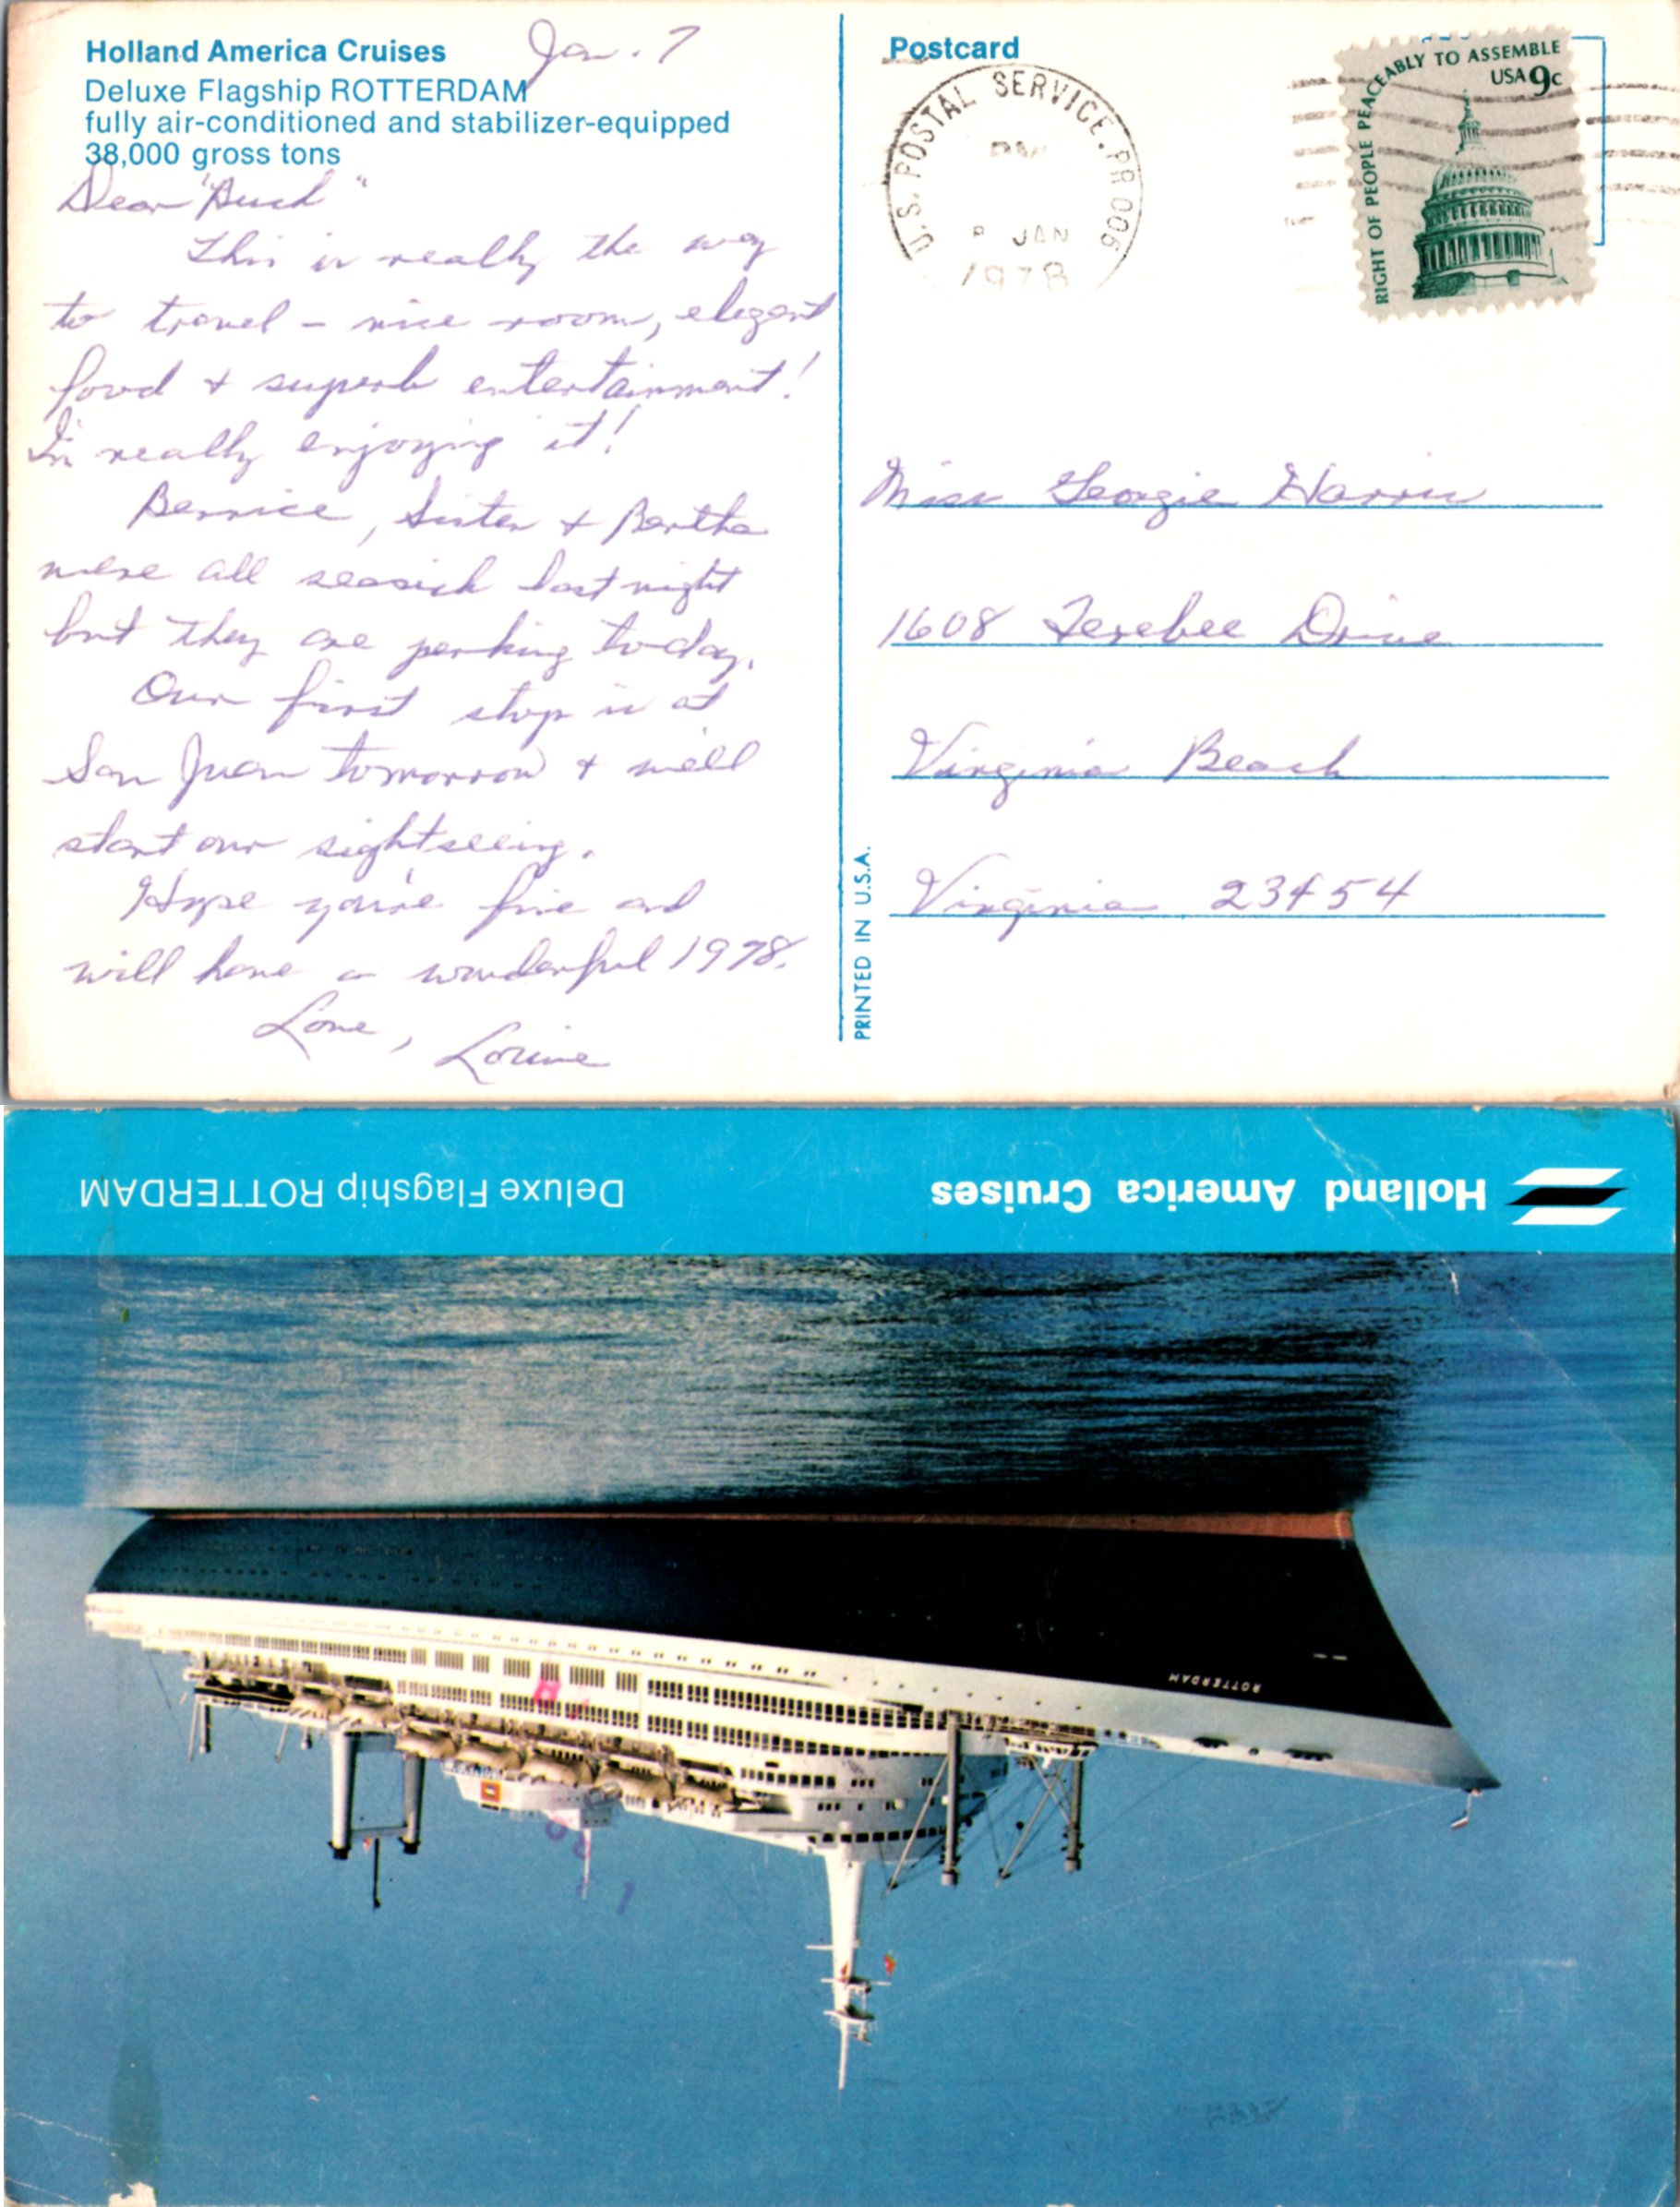 Holland America Cruises
Jan. 7
Deluxe Flagship ROTTERDAM
fully air-conditioned and stabilizer-equipped
38,000 gross tons
Dear
This is really the way
to travel - nice room, elegant
food + superb entertainment!
I'm really enjoying it!
Bernice, Sister + Bertha
were all seasick last night
but they are perking today.
Our first stop is at
San Juan tomorrow + we'll
start our sightseeing.
Hope you're fine and
will have a wonderful 1978.
Love,
Postcard
U.S. POSTAL SERVICE. PR 006
PM
8 JAN
1978
RIGHT OF PEOPLE PEACEABLY TO ASSEMBLE
USA 9c
Miss Georgie Harris
1608 Ferebee Drive
Virginia Beach
Virginia 23454
PRINTED IN U.S.A.
Holland America Cruises
Deluxe Flagship ROTTERDAM
ROTTERDAM